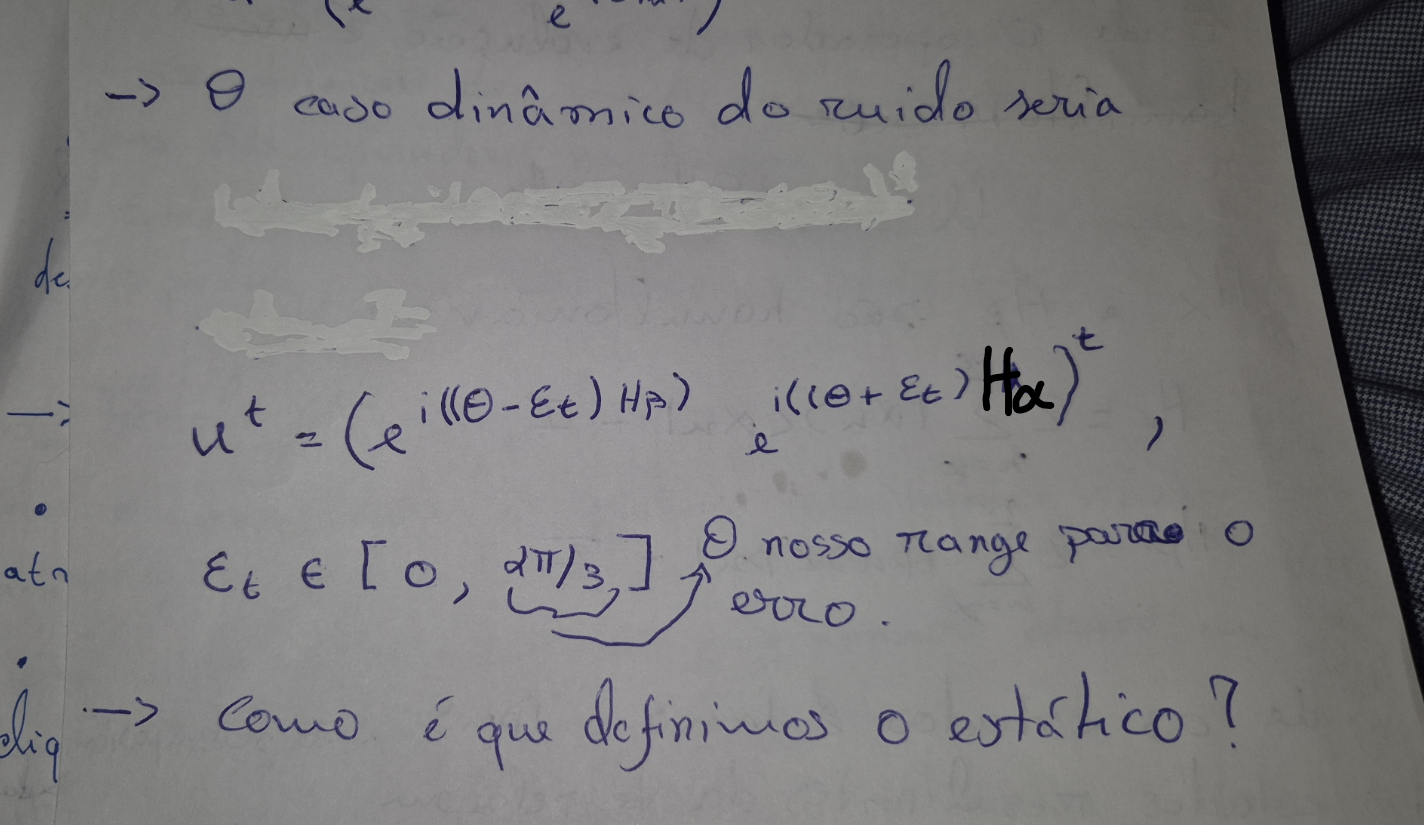 -> O caso dinâmico do ruido seria
u^t = (e^{i((θ-εt) Hβ)} e^{i((θ+εt) Hα})^t ,
εt ∈ [0, 2π/3] O nosso range para o
erro.
-> Como é que definimos o estático?